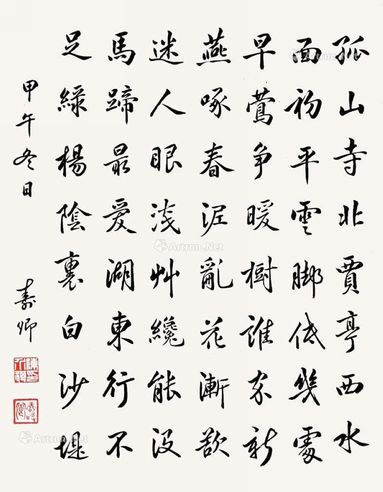 孤山寺北賈亭西水
面初平雲脚低幾處
早鶯争暖樹誰家新
燕啄春泥亂花漸欲
迷人眼淺艸纔能没
馬蹄最愛湖東行不
足綠楊陰裏白沙堤
甲午冬日
壽卿
Artron.Net